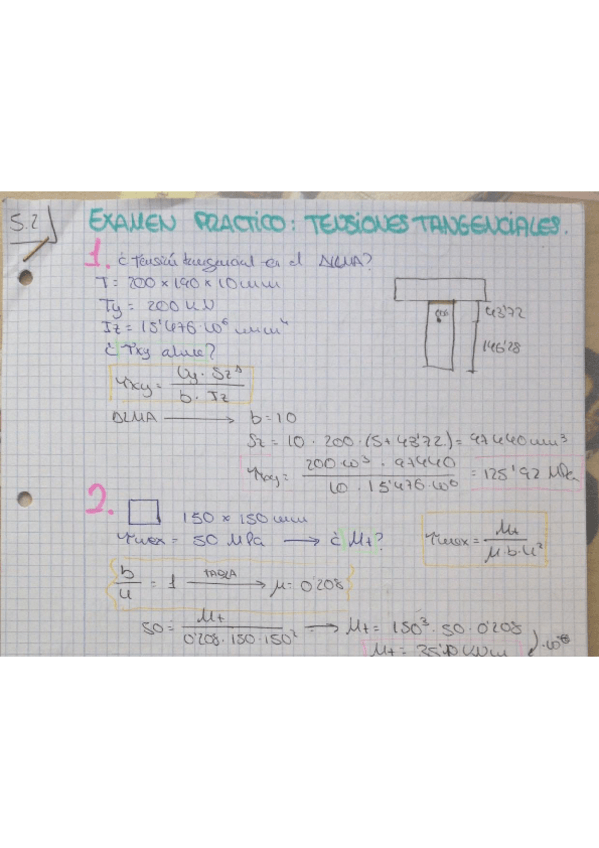 5.2
EXAMEN PRACTICO: TENSIONES TANGENCIALES.
1. ¿Tensión tangencial en el ALMA?
T = 200 x 190 x 10 mm
Ty = 200 kN
Iz = 15'476·10⁶ mm⁴
¿ τxy alma?
43'72
146'28
τxy = Ty · Sz^A / b · Iz
ALMA → b = 10
Sz = 10 · 200 · (5 + 43'72) = 97440 mm³
τxy = 200·10³ · 97440 / 10 · 15'476·10⁶ = 125'92 MPa
2. 150 x 150 mm
τmax = 50 MPa → ¿ Mt?
τmax = Mt / μ·b·h²
b / h = 1 TABLA → μ = 0'208
50 = Mt / 0'208·150·150² → Mt = 150³ · 50 · 0'208